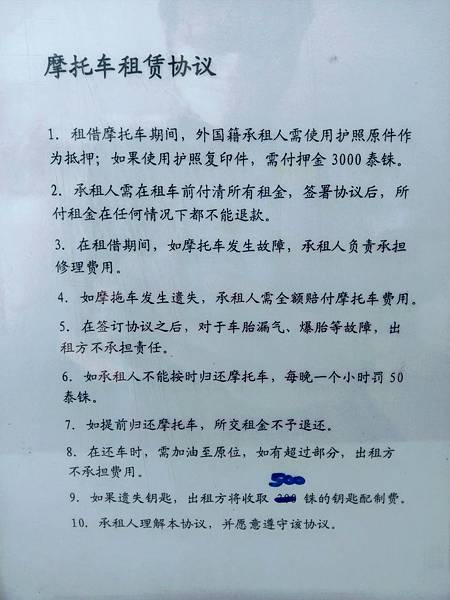 摩托车租赁协议
1. 租借摩托车期间，外国籍承租人需使用护照原件作
为抵押；如果使用护照复印件，需付押金 3000 泰铢。
2. 承租人需在租车前付清所有租金，签署协议后，所
付租金在任何情况下都不能退款。
3. 在租借期间，如摩托车发生故障，承租人负责承担
修理费用。
4. 如摩拖车发生遗失，承租人需全额赔付摩托车费用。
5. 在签订协议之后，对于车胎漏气、爆胎等故障，出
租方不承担责任。
6. 如承租人不能按时归还摩托车，每晚一个小时罚 50
泰铢。
7. 如提前归还摩托车，所交租金不予退还。
8. 在还车时，需加油至原位，如有超过部分，出租方
不承担费用。
500
9. 如果遗失钥匙，出租方将收取 铢的钥匙配制费。
10. 承租人理解本协议，并愿意遵守该协议。